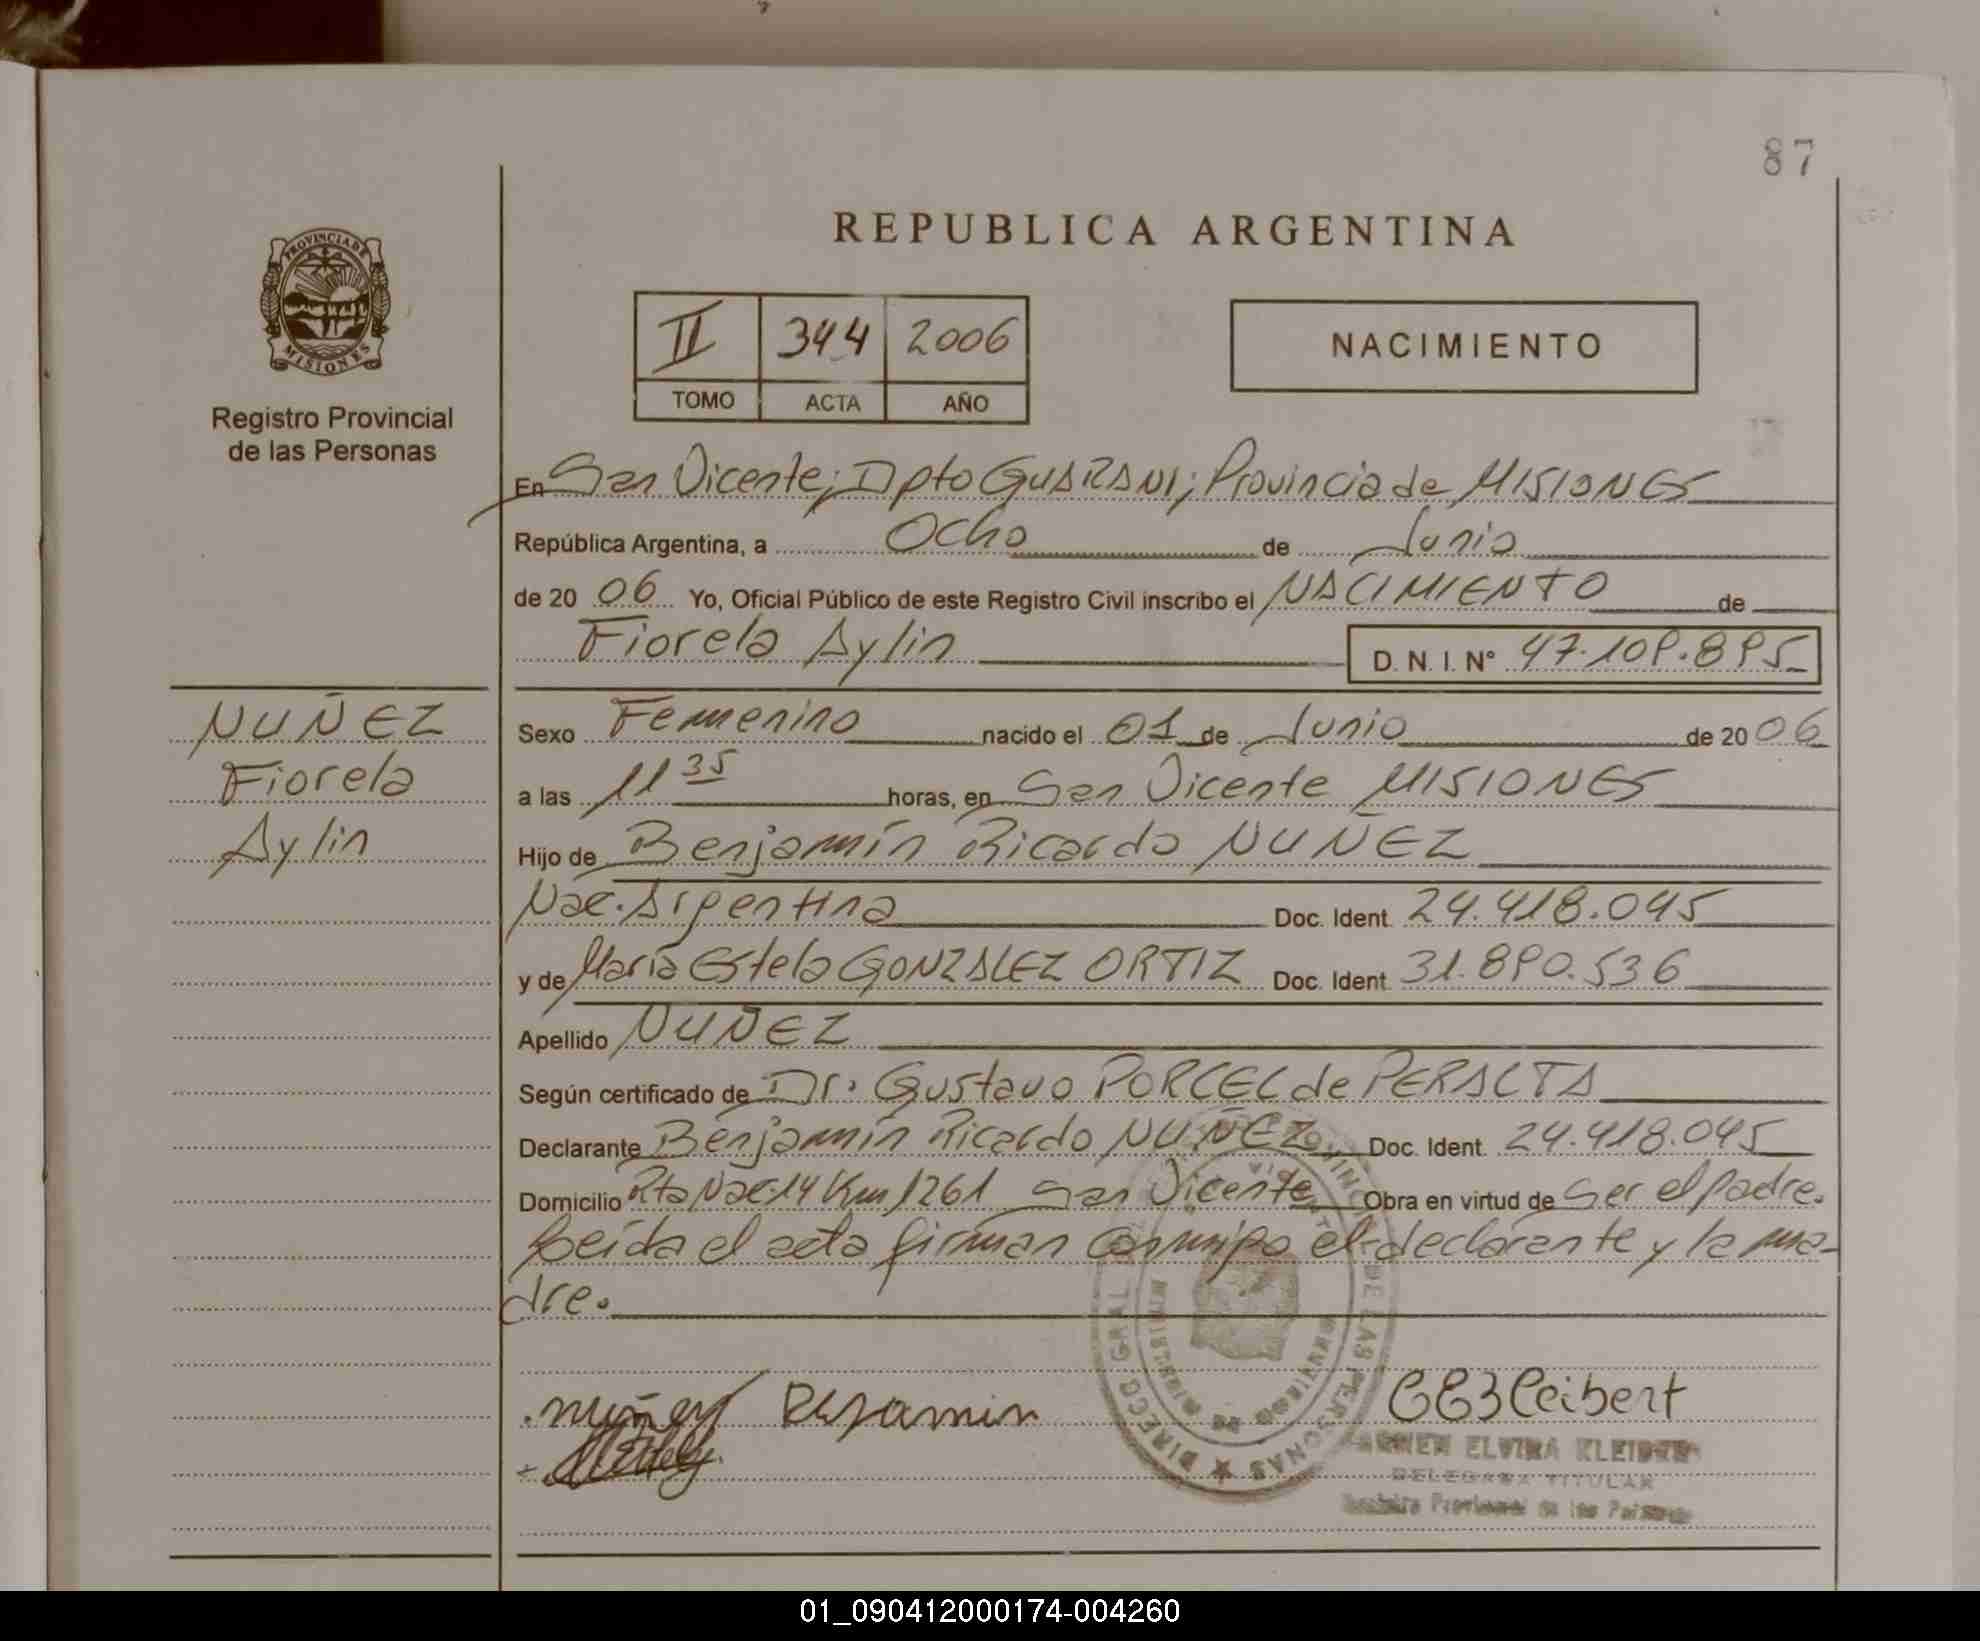 87
REPUBLICA ARGENTINA
PROVINCIA DE
MISIONES
Registro Provincial
de las Personas
II 344 2006
TOMO ACTA AÑO
NACIMIENTO
En San Vicente; Dpto GUARANI; Provincia de MISIONES
República Argentina, a Ocho de Junio
de 2006 Yo, Oficial Público de este Registro Civil inscribo el NACIMIENTO de
Fiorela Aylin D. N. I. N° 47.109.895
NUÑEZ
Fiorela
Aylin
Sexo Femenino nacido el 01 de Junio de 2006
a las 11 35 horas, en San Vicente MISIONES
Hijo de Benjamín Ricardo NUÑEZ
Nac. Argentina Doc. Ident. 24.418.045
y de María Estela GONZALEZ ORTIZ Doc. Ident. 31.890.536
Apellido NUÑEZ
Según certificado de Dr. Gustavo PORCEL de PERALTA
Declarante Benjamín Ricardo NUÑEZ Doc. Ident. 24.418.045
Domicilio Rta Nac. 14 Km 1261 San Vicente Obra en virtud de Ser el padre.
Leída el acta firman conmigo el declarante y la ma-
dre.
Nuñez Benjamin
DIRECC GRAL PROVINCIAL DE LAS PERSONAS
ELVIRA KLEIBERT
DELEGADA TITULAR
Registro Provincial de las Personas
01_090412000174-004260